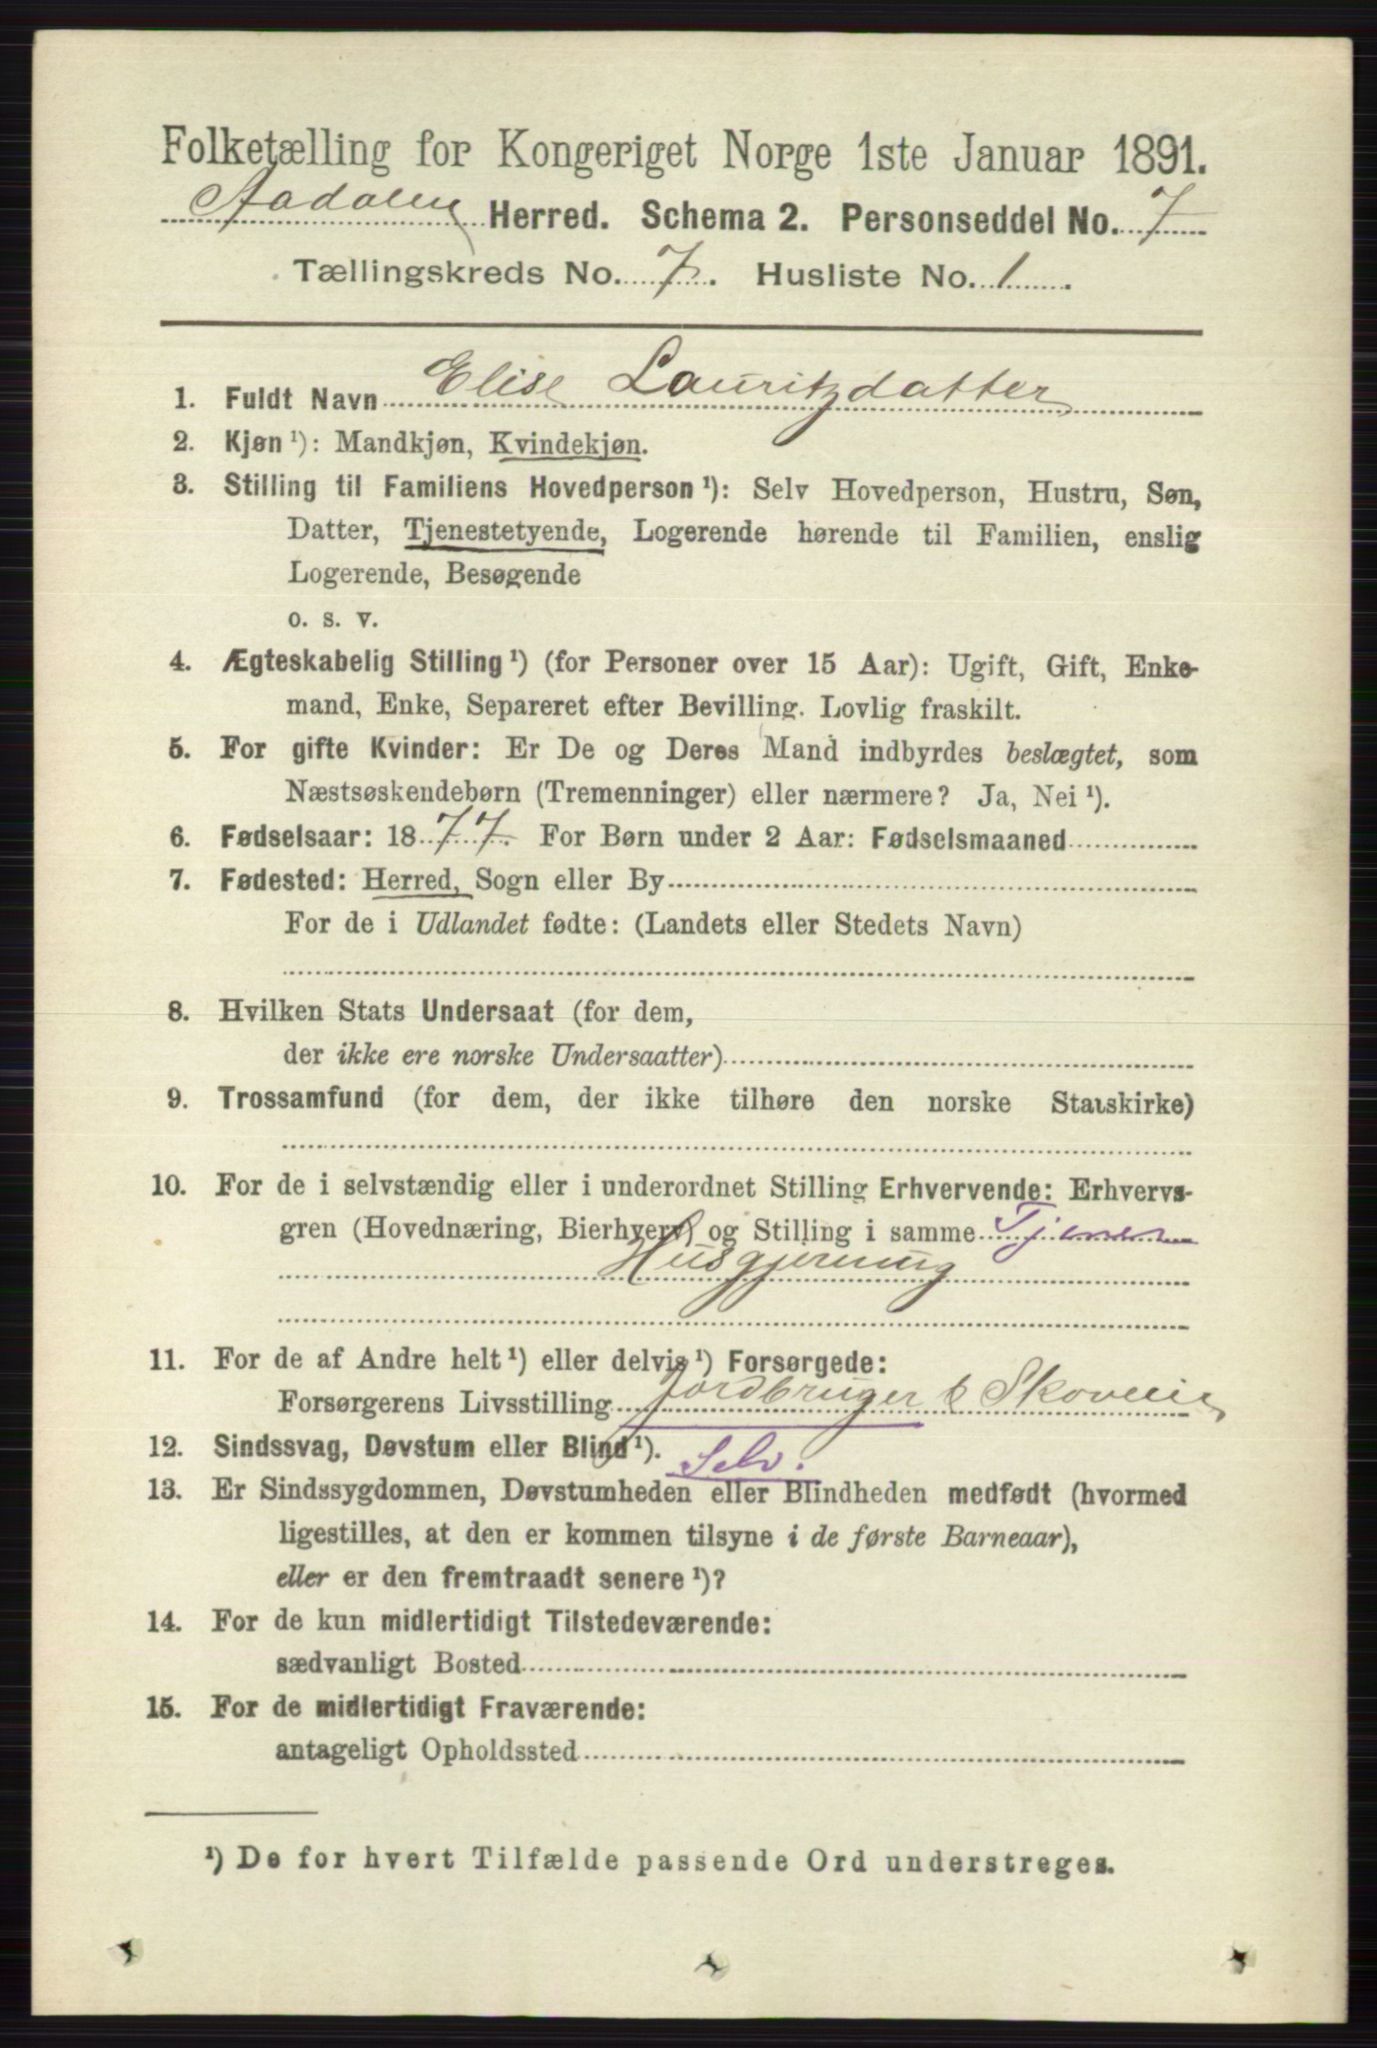 Folketælling for Kongeriget Norge 1ste Januar 1891.
Aadalen Herred. Schema 2. Personseddel No. 7
Tællingskreds No. 7. Husliste No. 1.
1. Fuldt Navn Elise Lauritzdatter
2. Kjøn ¹): Mandkjøn, Kvindekjøn.
3. Stilling til Familiens Hovedperson ¹): Selv Hovedperson, Hustru, Søn,
Datter, Tjenestetyende, Logerende hørende til Familien, enslig
Logerende, Besøgende
o. s. v.
4. Ægteskabelig Stilling ¹) (for Personer over 15 Aar): Ugift, Gift, Enke-
mand, Enke, Separeret efter Bevilling. Lovlig fraskilt.
5. For gifte Kvinder: Er De og Deres Mand indbyrdes beslægtet, som
Næstsøskendebørn (Tremenninger) eller nærmere? Ja, Nei ¹).
6. Fødselsaar: 1877. For Børn under 2 Aar: Fødselsmaaned
7. Fødested: Herred, Sogn eller By
For de i Udlandet fødte: (Landets eller Stedets Navn)
8. Hvilken Stats Undersaat (for dem,
der ikke ere norske Undersaatter)
9. Trossamfund (for dem, der ikke tilhøre den norske Statskirke)
10. For de i selvstændig eller i underordnet Stilling Erhvervende: Erhvervs-
gren (Hovednæring, Bierhverv) og Stilling i samme Tjener
Husgjerning
11. For de af Andre helt ¹) eller delvis ¹) Forsørgede:
Forsørgerens Livsstilling Jordbruger &
12. Sindssvag, Døvstum eller Blind ¹). Selv.
13. Er Sindssygdommen, Døvstumheden eller Blindheden medfødt (hvormed
ligestilles, at den er kommen tilsyne i de første Barneaar),
eller er den fremtraadt senere ¹)?
14. For de kun midlertidigt Tilstedeværende:
sædvanligt Bosted
15. For de midlertidigt Fraværende:
antageligt Opholdssted
¹) De for hvert Tilfælde passende Ord understreges.